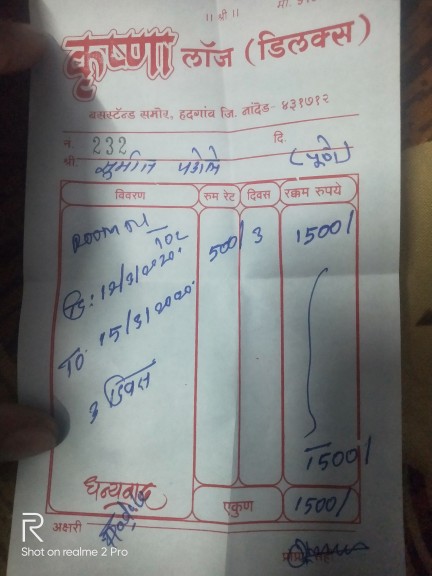 ॥ श्री ॥
मो.
कृष्णा लॉज (डिलक्स)
बसस्टॅन्ड समोर, हदगांव जि. नांदेड- ४३१७१२
न. 232 दि.
श्री. (पूणे)
विवरण रुम रेट दिवस रक्कम रुपये
ROOM NO 500/ 3 1500/
TO 15/3/2020
3 दिवस
1500/
धन्यवाद
एकुण 1500/
अक्षरी
Shot on realme 2 Pro